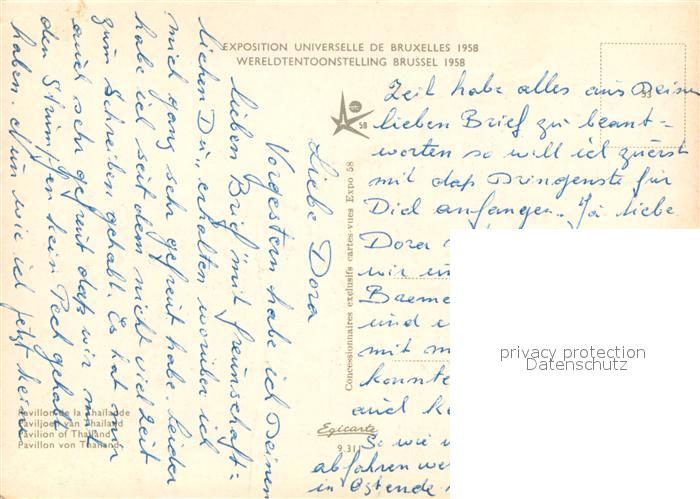 EXPOSITION UNIVERSELLE DE BRUXELLES 1958
WERELDTENTOONSTELLING BRUSSEL 1958
58
Liebe Dora
Vorgestern habe ich Deinen
lieben Brief "mit freunschaft-
lichen Du" erhalten worüber ich
mich ganz sehr gefreut habe. Leider
habe ich seit dem nicht viel Zeit
zum Schreiben gehabt. Es hat mir
auch sehr gefreut daß wir mit
den Strümpfen kein Pech gehabt
haben. Nun wie ich jetzt keine
Zeit habe alles aus Deinem
lieben Brief zu beant-
worten so will ich zuerst
mit daß Dringenste für
Dich anfangen. Ja liebe
Dora
wir
Breme
und
mit
konnte
auch
So wie
abfahren
in Ostende
Concessionnaires exclusifs cartes-vues Expo 58
Egicarte
9.31
Pavillon de la Thaïlande
Paviljoen van Thailand
Pavilion of Thailand
Pavillon von Thailand
privacy protection
Datenschutz